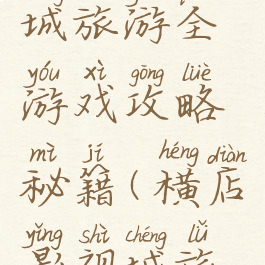 城旅游全
yóu xì gōng lüè
游戏攻略
mì jí héng diàn
秘籍(横店
yǐng shì chéng lǚ
影视城旅